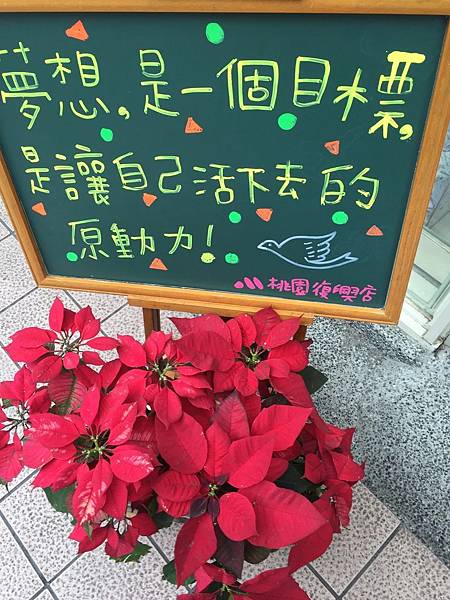 夢想,是一個目標,
是讓自己活下去的
原動力!
桃園復興店